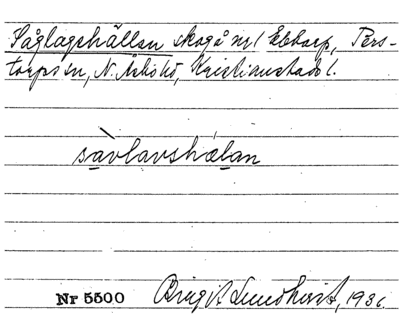 Såglagshällan skog å nr 1 Ebbarp, Pers-
torps sn, N. Åsbo hd, Kristianstads l.
sàvlavshælan
Nr 5500 Birgit Lundkvist, 1936.